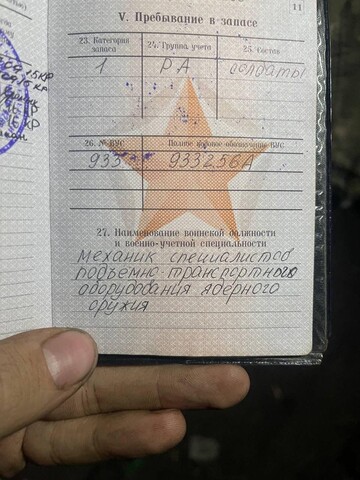 11
V. Пребывание в запасе
23. Категория запаса
24. Группа учета
25. Состав
1 РА солдаты
26. № ВУС
Полное кодовое обозначение ВУС
933 933256А
27. Наименование воинской должности
и военно-учетной специальности
механик специалистов
подъемно-транспортного
оборудования ядерного
оружия